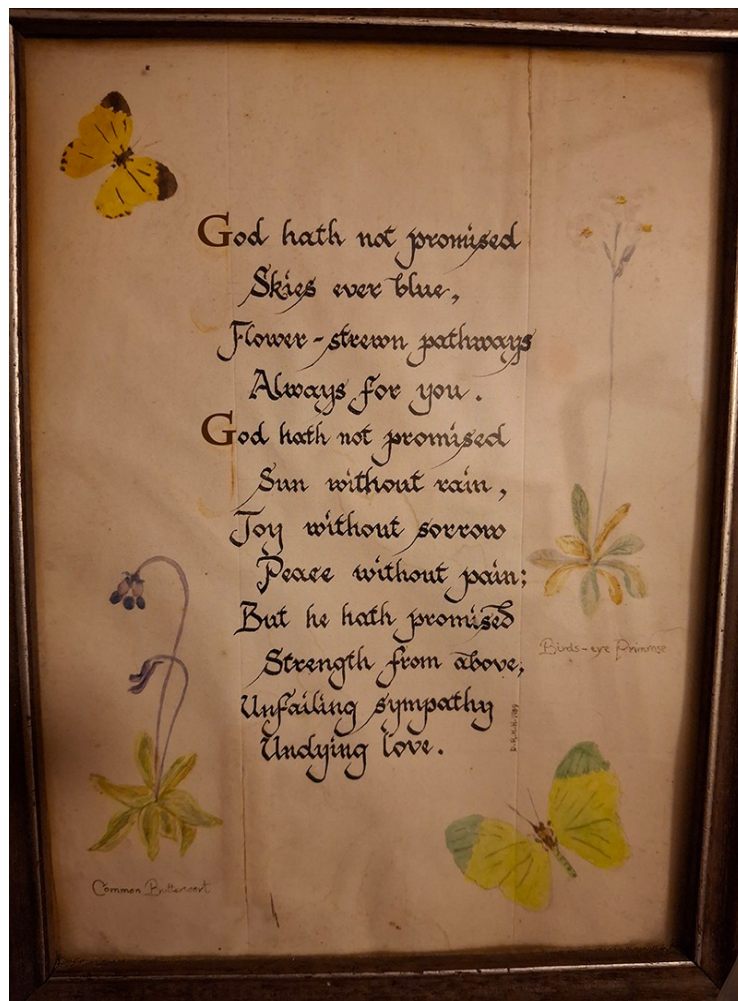 God hath not promised
Skies ever blue,
Flower-strewn pathways
Always for you.
God hath not promised
Sun without rain,
Joy without sorrow
Peace without pain;
But he hath promised
Strength from above,
Unfailing sympathy
Undying love.
Birds-eye Primrose
Common Butterwort